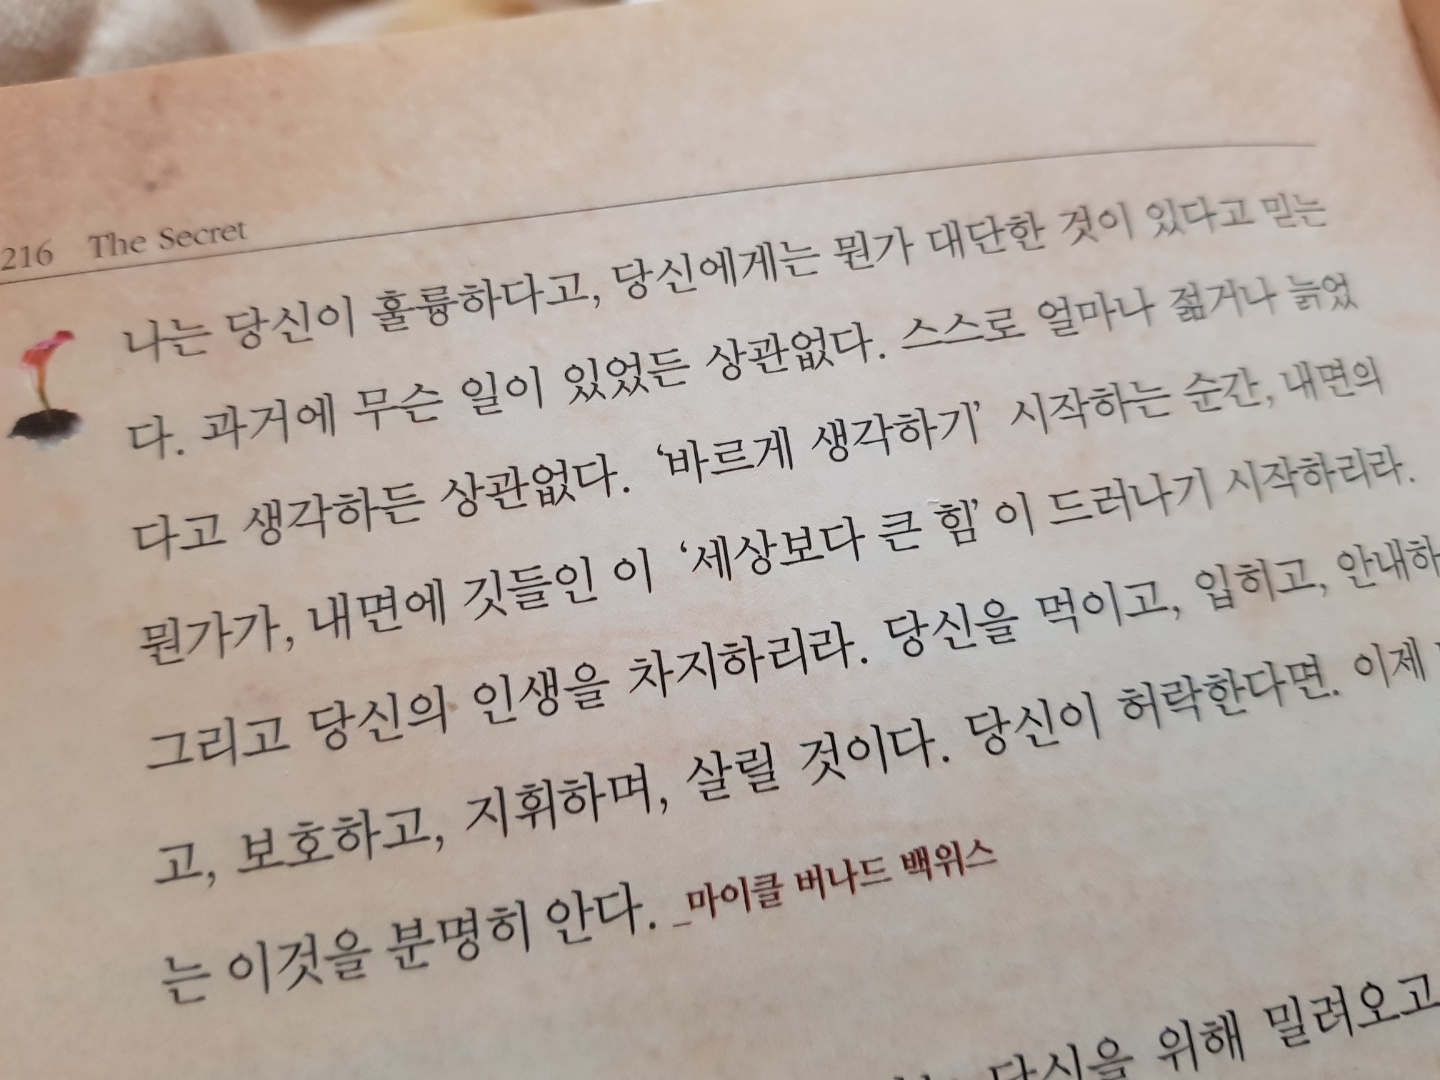 216 The Secret
나는 당신이 훌륭하다고, 당신에게는 뭔가 대단한 것이 있다고 믿는
다. 과거에 무슨 일이 있었든 상관없다. 스스로 얼마나 젊거나 늙었
다고 생각하든 상관없다. ‘바르게 생각하기’ 시작하는 순간, 내면의
뭔가가, 내면에 깃들인 이 ‘세상보다 큰 힘’이 드러나기 시작하리라.
그리고 당신의 인생을 차지하리라. 당신을 먹이고, 입히고, 안내하
고, 보호하고, 지휘하며, 살릴 것이다. 당신이 허락한다면. 이제
는 이것을 분명히 안다. _마이클 버나드 백위스
당신을 위해 밀려오고